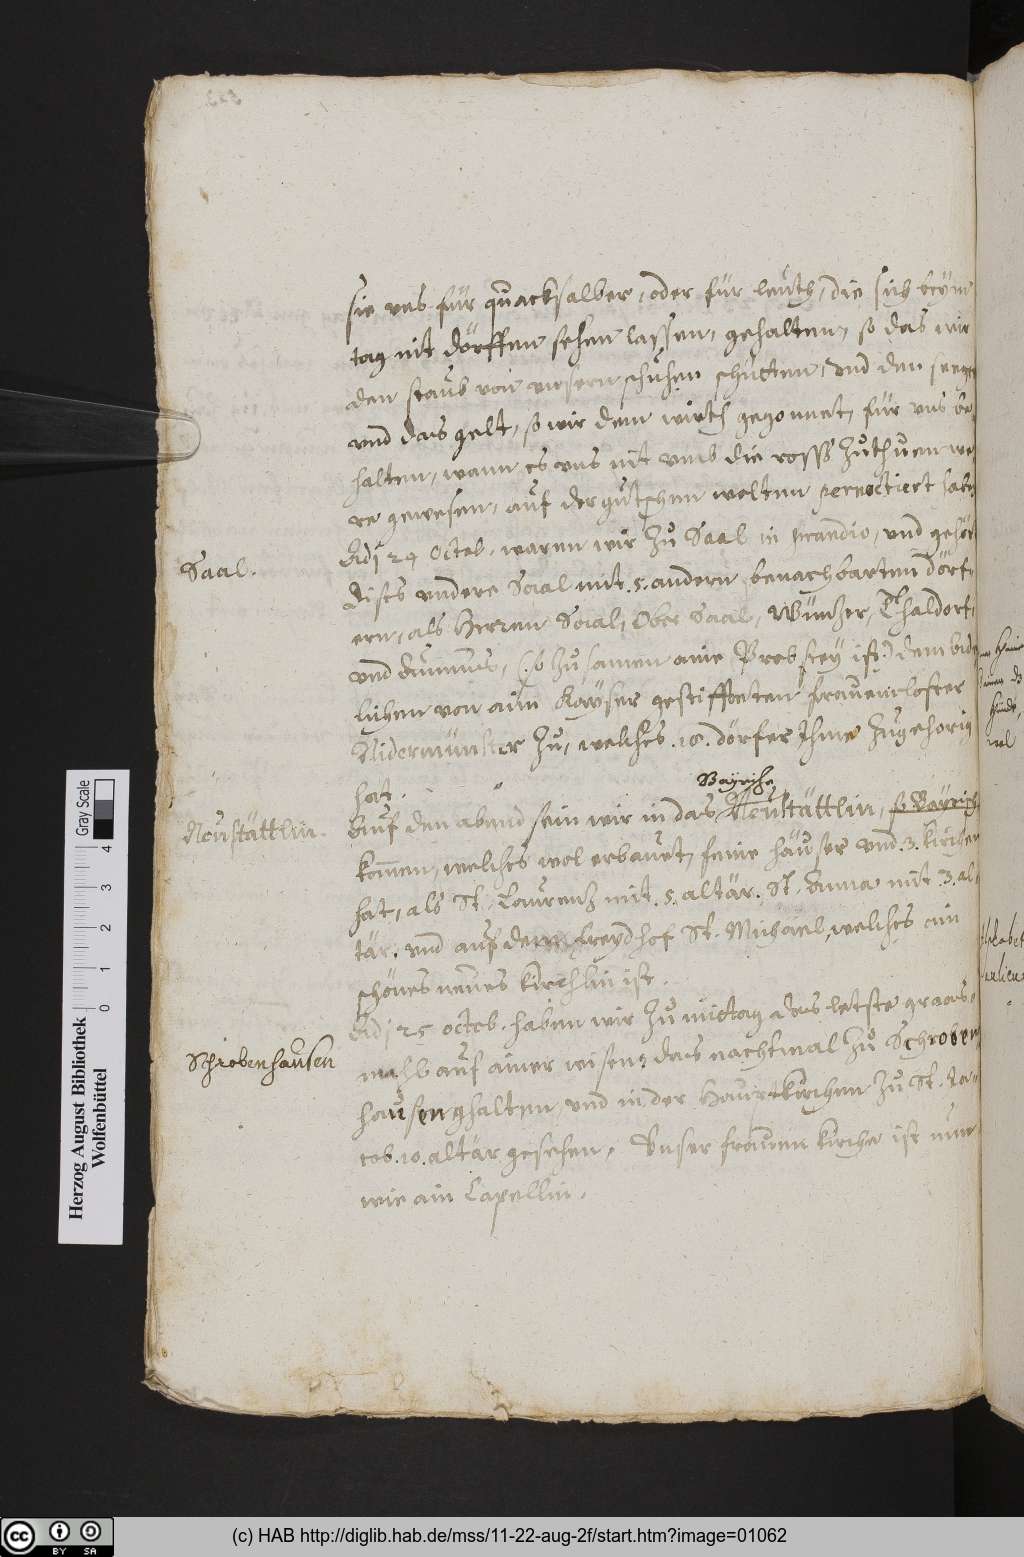 sie uns für quacksalber, oder für leuth, die sich beym
tag nit dörffen sehen lassen, gehalten, so das wir
den staub von unsern schuhen schütten, und den seegen
und das gelt, so wir dem wirth gegonnet, für uns be
halten, wann es uns nit umb die ross zuthuen we
re gewesen, auf der gutschen wolten pernoctiert haben
Saal.
Adj 24 Octob. waren wir zu Saal in prandio, und gehör
dises undere Saal mit .5. andern benachbarten dörf,
ern, als Herren Saal, Ober Saal, Wüntzer, Thaldorf,
und (:so zusamen aine Probstey ist:) dem
lichen von aim Kayser gestiffteten frauencloster
Nidermünster zu, welches .18. dörfer Ihme zugehörig
hat.
Bayrische
Neustättlin.
Auf den abend sein wir in das Neustättlin,
kommen, welches wol erbauet, feine häuser und .3. kirchen
hat, als St. Laurentz mit .5. altär. St. Anna mit .3. al,
tär. und auf dem freydhof St. Michael, welches ein
schönes neues kirchlin ist.
Schrobenhausen
Adj 25 octob. haben wir zu mittag das letste graas,
mahl auf ainer wisen, das nachtmal zu Schroben
hausen ghalten, und in der Haubtkirchen zu St. Ja,
cob .10. altär gesehen. Unser frauen kirche ist nun
wie ain Capellin.
Herzog August Bibliothek
Wolfenbüttel
Gray Scale
0 1 2 3 4
CC BY SA
(c) HAB http://diglib.hab.de/mss/11-22-aug-2f/start.htm?image=01062